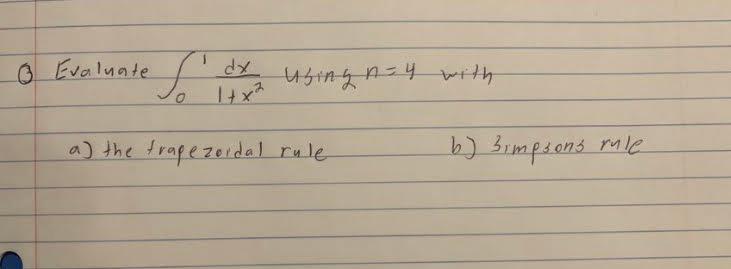 Q Evaluate ∫₀¹ dx/(1+x²) using n=4 with
a) the trapezoidal rule b) Simpsons rule